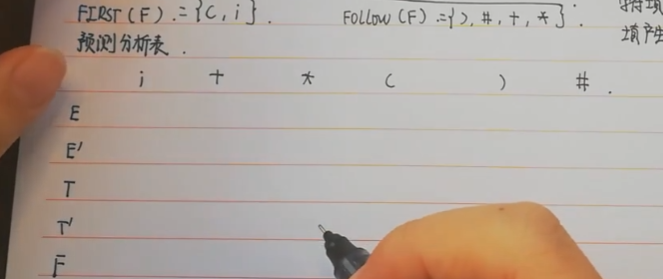 FIRST(F).={(, i}. FOLLOW(F).={), #, +, *}.
预测分析表.
i + * ( ) #.
E
E'
T
T'
F